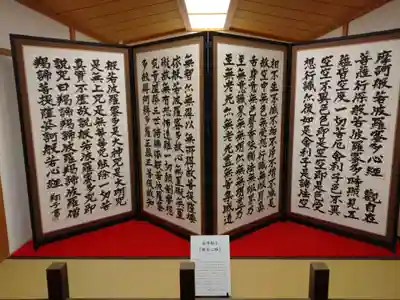 摩訶般若波羅蜜多心経 観自在
菩薩行深般若波羅蜜多時照見五
蘊皆空度一切苦厄舎利子色不異
空空不異色色即是空空即是色受
想行識亦復如是舎利子是諸法空
相不生不滅不垢不浄不増不減是
故空中無色無受想行識無眼耳鼻
舌身意無色声香味触法無眼界乃
至無意識界無無明亦無無明尽乃
至無老死亦無老死尽無苦集滅道
無智亦無得以無所得故菩提薩埵
依般若波羅蜜多故心無罣礙無罣
礙故無有恐怖遠離一切顛倒夢想
究竟涅槃三世諸仏依般若波羅蜜
多故得阿耨多羅三藐三菩提故知
般若波羅蜜多是大神呪是大明呪
是無上呪是無等等呪能除一切苦
真実不虚故説般若波羅蜜多呪即
説呪曰羯諦羯諦波羅羯諦波羅僧
羯諦菩提薩婆訶般若心経 翔子書
金澤翔子
「般若心経」